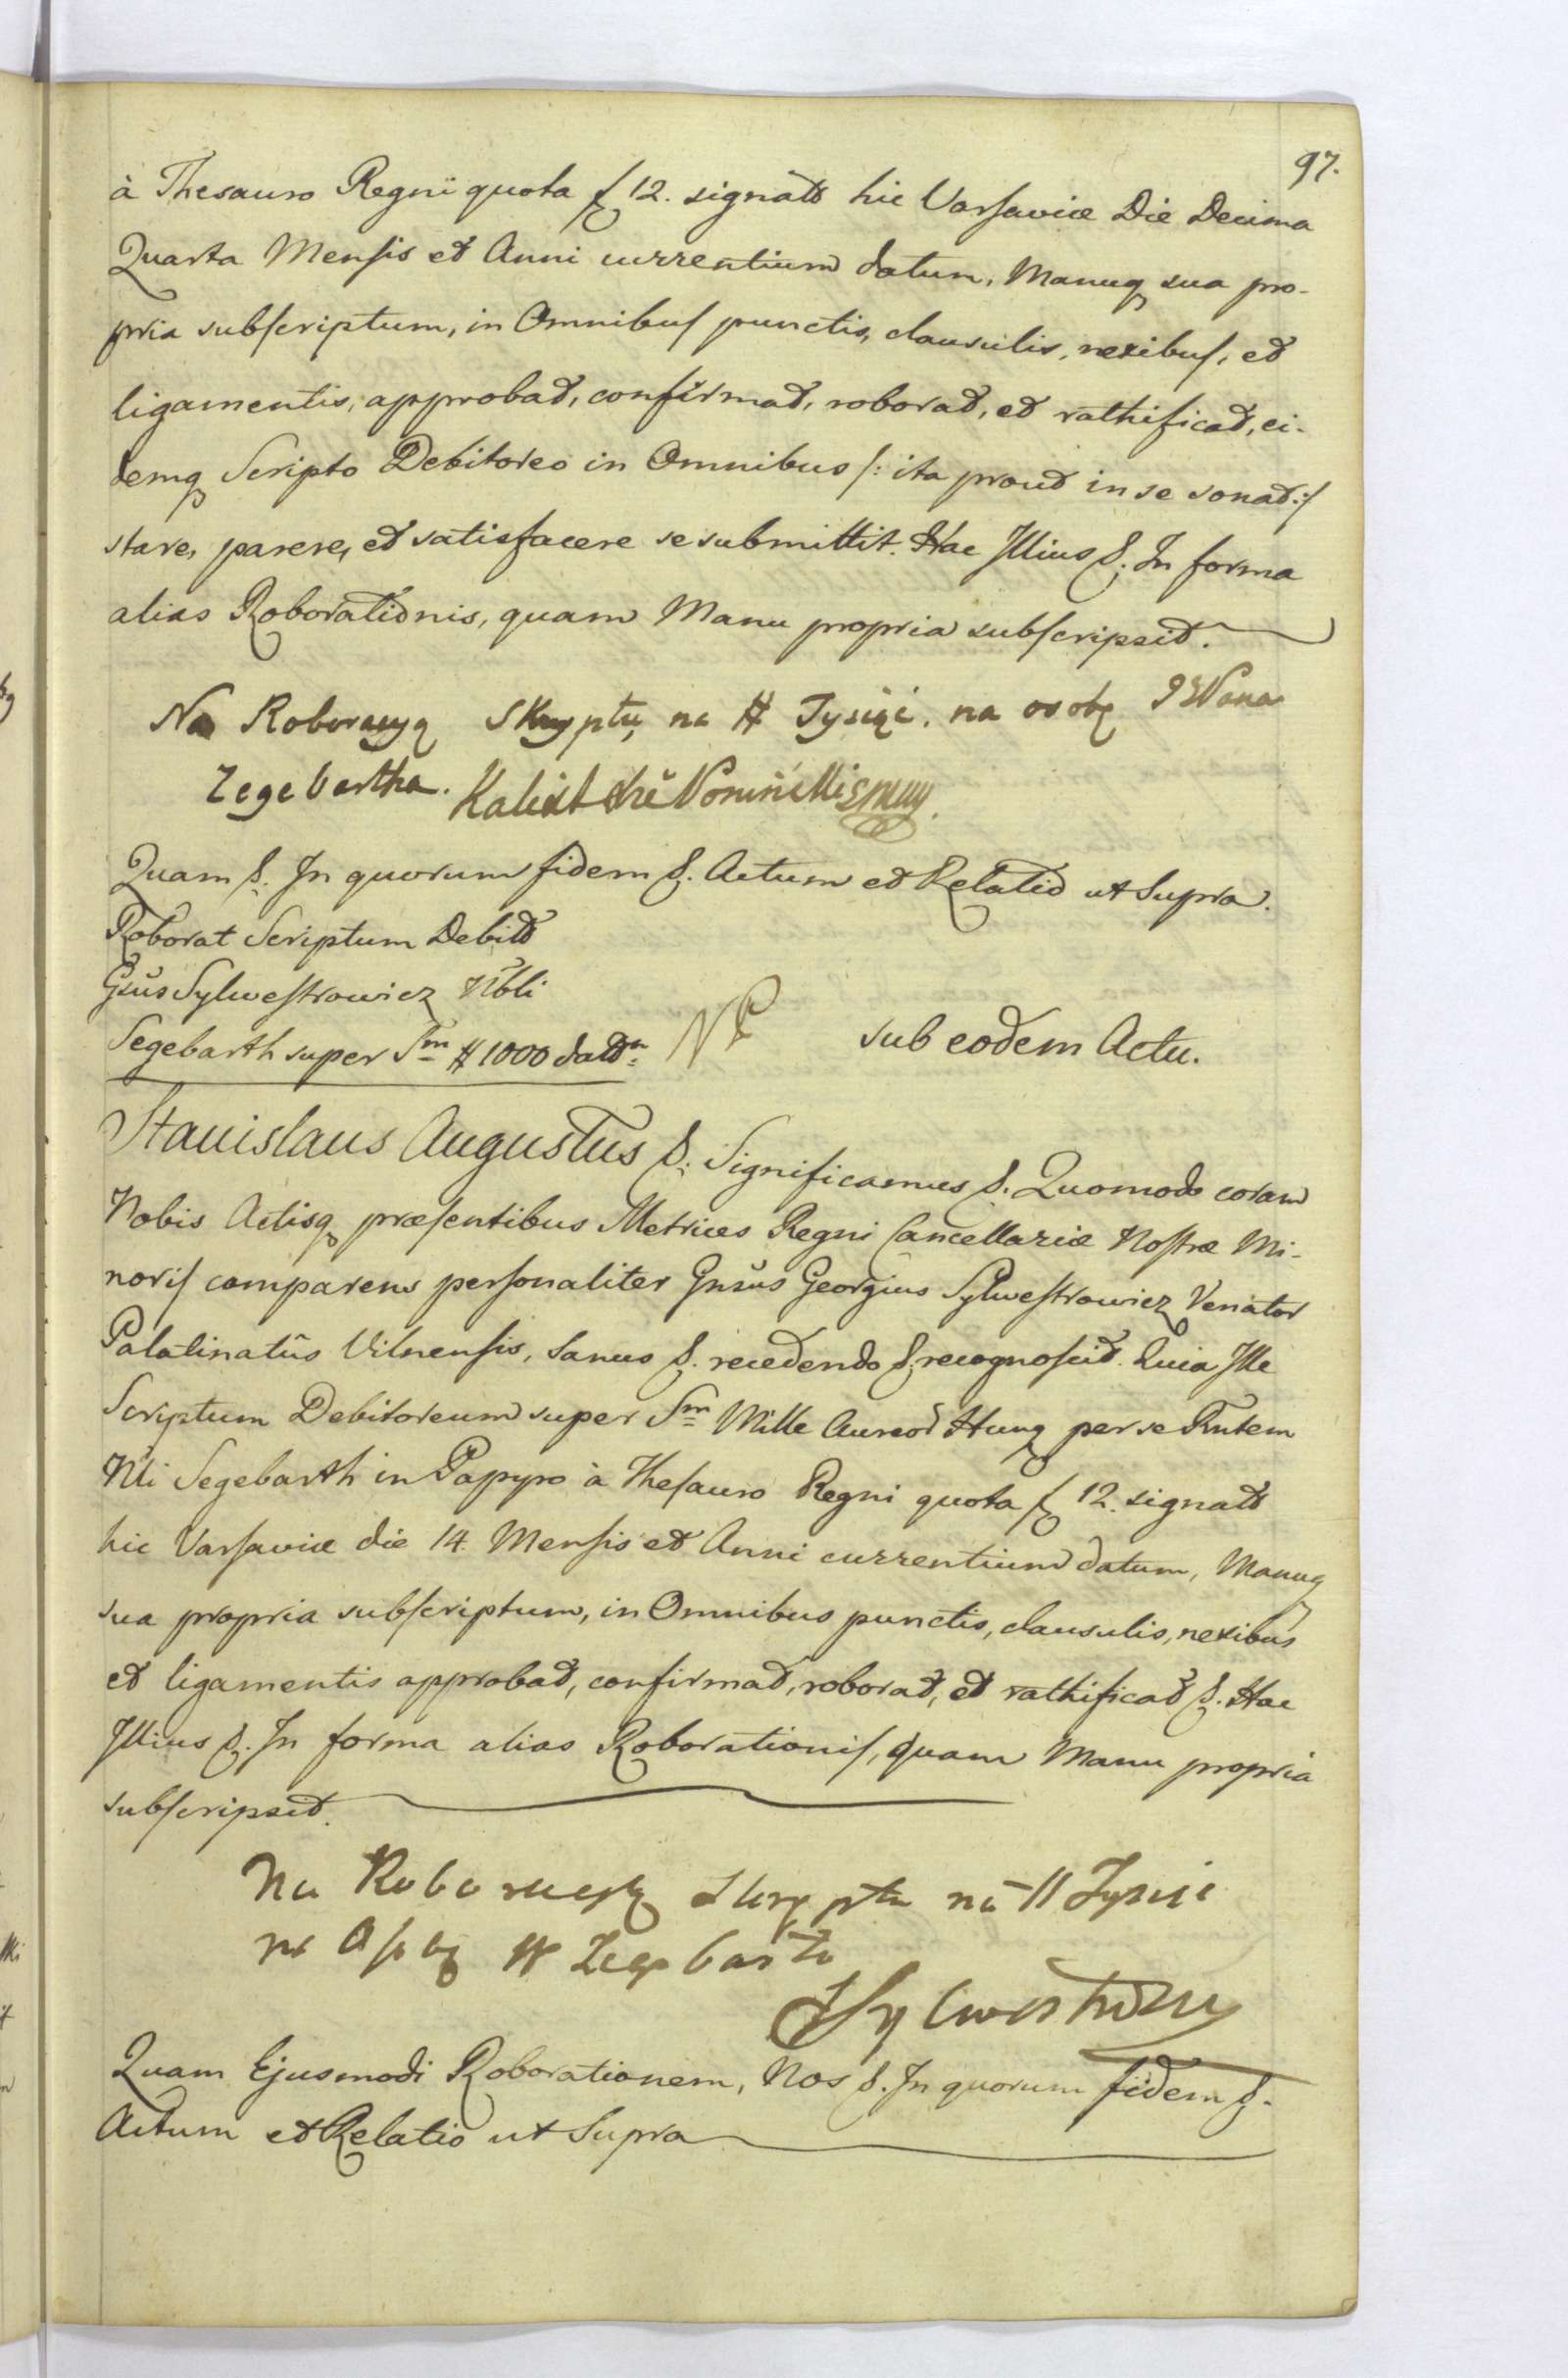 97.
à Thesauro Regni quota f 12. signato hic Varsaviæ Die Decima
Quarta Mensis et Anni currentium datum, Manuq sua pro-
pria subscriptum, in Omnibus punctis, clausulis, nexibus, et
ligamentis, approbat, confirmat, roborat, et rathificat, ei-
demq Scripto Debitoreo in Omnibus /: ita prout in se sonat :/
stare, parere, et satisfacere se submittit. Hac Illius &. In forma
alias Roborationis, quam Manu propria subscripsit.
Na Roboracyą Skryptu na # Tysiąc. na osobę
Zegebartha. Kalixt
Quam &. In quorum fidem &. Actum et Relatio ut Supra.
Roborat Scriptum Debito
Gsus Sylwestrowicz Nbli
Segebarth super Sm # 1000 datm
sub eodem Actu.
Stanislaus Augustus &. Significamus &. Quomodo coram
Nobis Actisq præsentibus Metrices Regni Cancellariæ Nostræ Mi-
noris comparens personaliter Gnsus Georgius Sylwestrowicz Venator
Palatinatûs Vilnensis, Sanus &. recedendo & recognoscit. Quia Ille
Scriptum Debitoreum super Sm Mille Aureor Hung per se Entem
Nli Segebarth in Papyro à Thesauro Regni quota f 12. signato
hic Varsaviæ die 14. Mensis et Anni currentium datum, Manuq
sua propria subscriptum, in Omnibus punctis, clausulis, nexibus
et ligamentis approbat, confirmat, roborat, et rathificat &. Hac
Illius &. In forma alias Roborationis, quam Manu propria
subscripsit.
Na Roboracyę Skryptu na # Tysiąc
na Osobę Zegebarta
Quam Ejusmodi Roborationem, Nos &. In quorum fidem &.
Actum et Relatio ut Supra